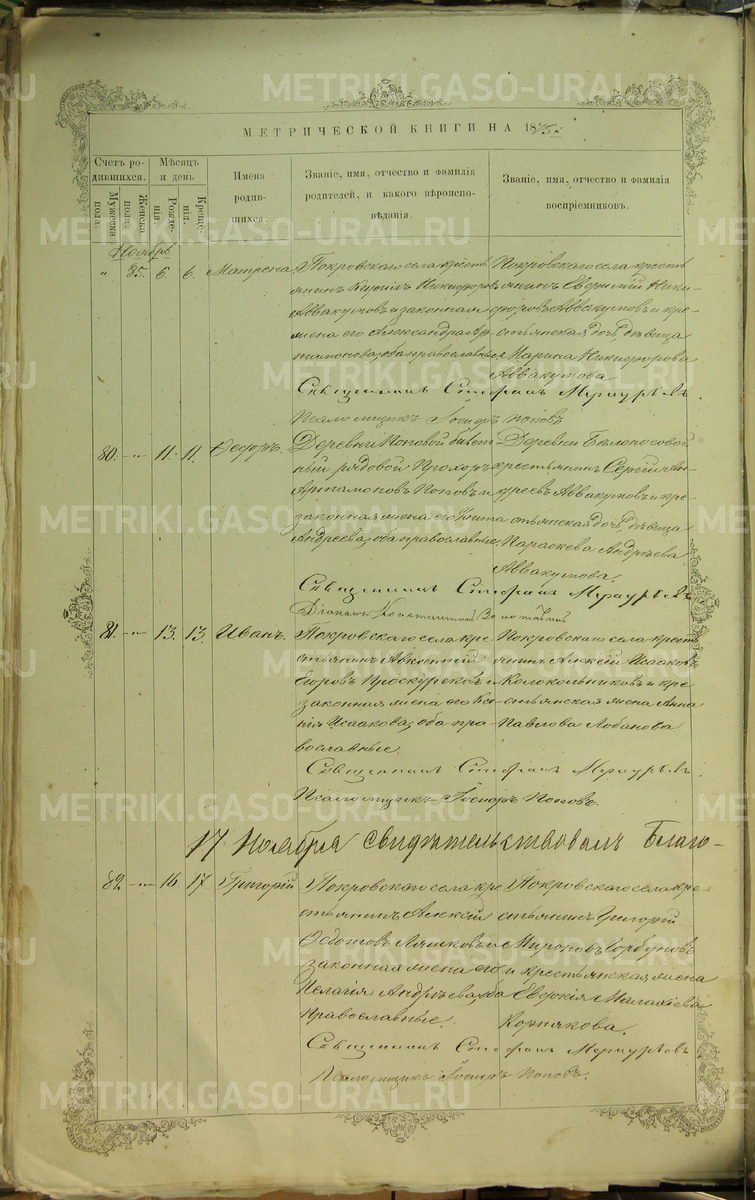 METRIKI.GASO-URAL.RU
МЕТРИЧЕСКОЙ КНИГИ НА 18
Счетъ родившихся.
Мужеска пола.
Женска пола.
Мѣсяцъ и день
Рожденія.
Крещенія.
Имена родившихся.
Званіе, имя, отчество и фамилія родителей, и какого вѣроисповѣданія.
Званіе, имя, отчество и фамилія воспріемниковъ.
Ноябрь
" 85. 6 6. Матрена
Покровскаго села крестьянинъ Никифоровъ
Аввакумовъ и законная
жена его Александра Ар-
тамонова, оба православные
Покровскаго села кресть
янинъ Евфимій Ники-
форовъ Аввакумовъ и кре-
стьянская дочь, дѣвица
Марина Никифорова
Аввакумова
Священникъ Стефанъ Меркурьевъ.
Псаломщикъ Поповъ
80. -"- 11. 11. Ѳеодоръ.
Деревни Поповой билет
ный рядовой Прохоръ
Артамоновъ Поповъ и
законная жена его
Андреева, оба православные
Деревни Бѣлоносовой
крестьянинъ Сергій Ан-
дреевъ Аввакумовъ и кре-
стьянская дочь, дѣвица
Параскева Андрѣева
Аввакумова.
Священникъ Стефанъ Меркурьевъ
Діаконъ Константинъ
81. -"- 13. 13. Иванъ.
Покровскаго села кре-
стьянинъ Авксентій
Егоровъ Проскуряковъ и
законная жена его Ксе-
нія Исаакова, оба пра-
вославные.
Покровскаго села кресть
янинъ Алексій Исааковъ
Колокольниковъ и кре
стьянская жена Анна
Павлова Лобанова
Священникъ Стефанъ Меркурьевъ.
Псаломщикъ Поповъ.
17 Ноября свидѣтельствовалъ Благо-
82. -"- 16. 17. Григорій
Покровскаго села кре
стьянинъ Алексій
Ѳедотовъ и
законная жена его
Пелагія Андрѣева, оба
православные.
Покровскаго села кре-
стьянинъ Григорій
Мироновъ Горбуновъ
и крестьянская жена
Евдокія
Корнякова.
Священникъ Стефанъ Меркурьевъ
Псаломщикъ Поповъ.